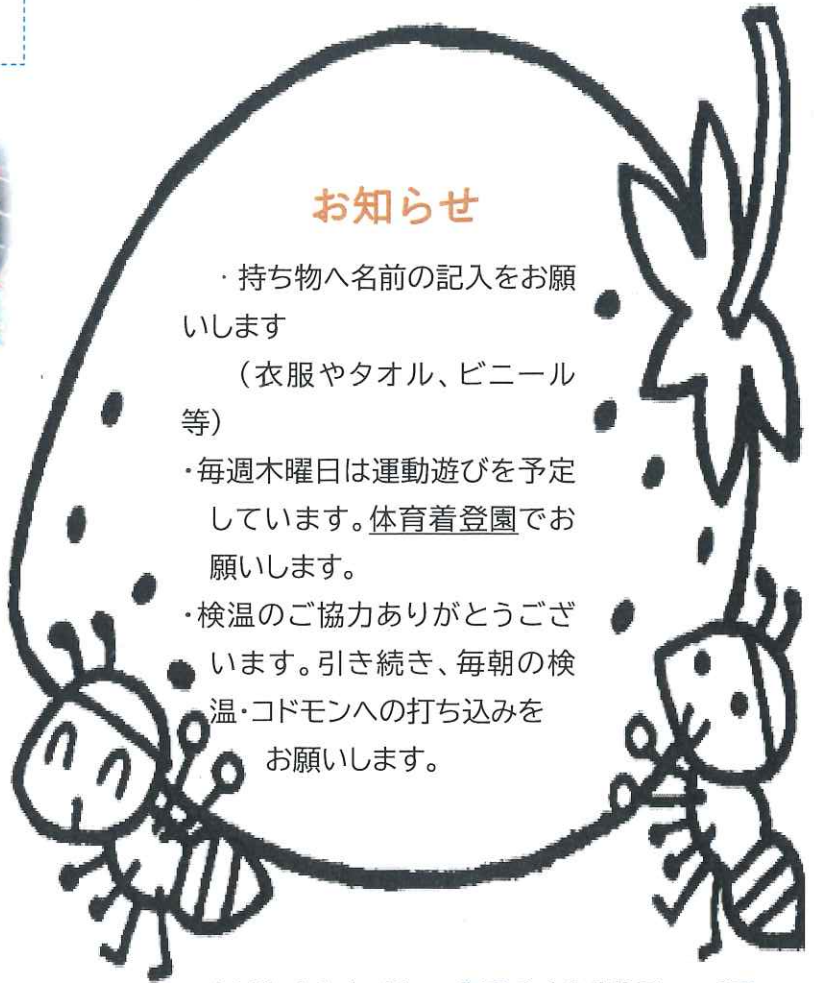 お知らせ
・持ち物へ名前の記入をお願
いします
（衣服やタオル、ビニール
等）
・毎週木曜日は運動遊びを予定
しています。体育着登園でお
願いします。
・検温のご協力ありがとうござ
います。引き続き、毎朝の検
温・コドモンへの打ち込みを
お願いします。